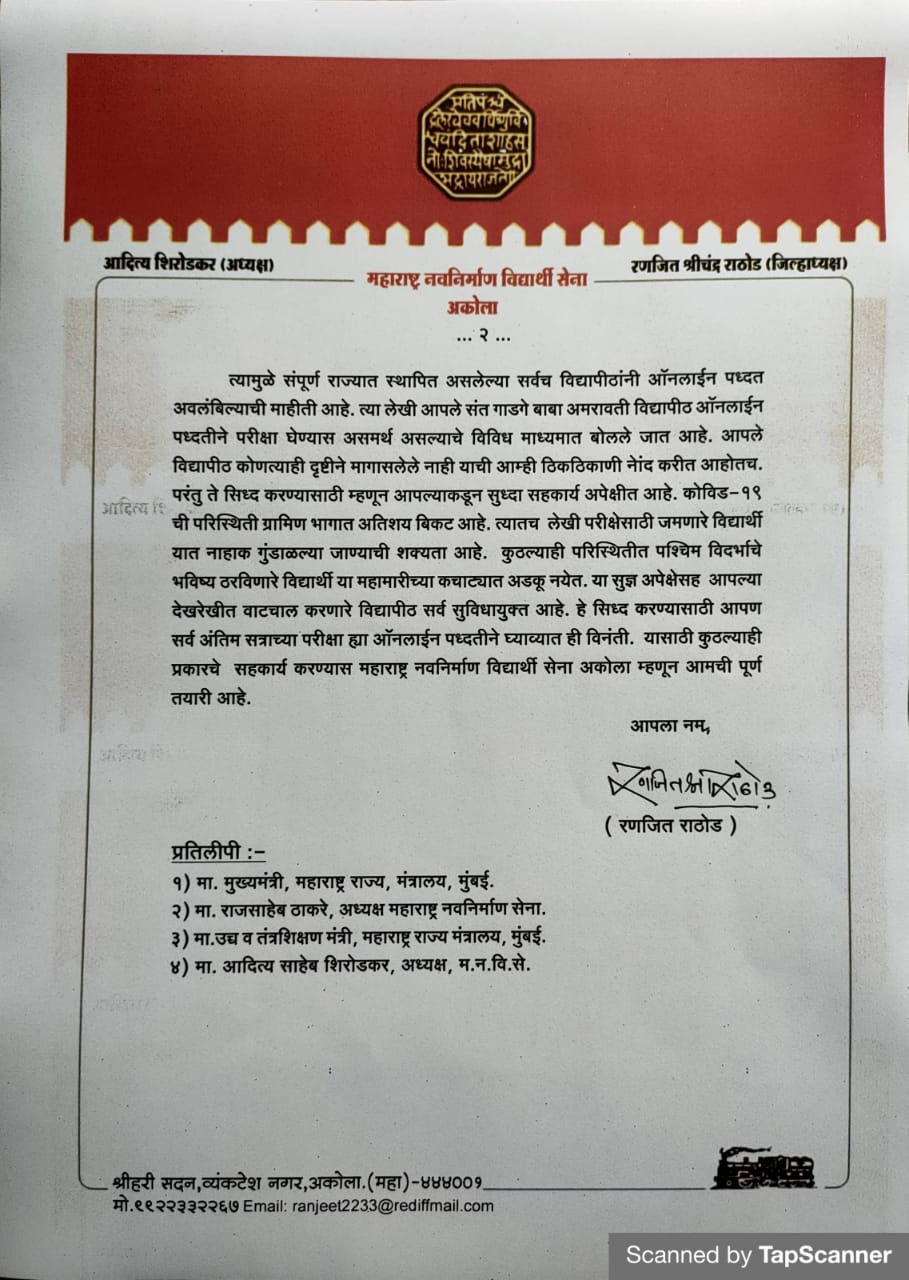 प्रतिपश्चं
द्रलेखेववर्धिष्णुर्वि
श्ववंदिता शाहसू
नोः शिवस्यैषा मुद्रा
भद्रायराजते
आदित्य शिरोडकर (अध्यक्ष)
रणजित श्रीचंद्र राठोड (जिल्हाध्यक्ष)
महाराष्ट्र नवनिर्माण विद्यार्थी सेना
अकोला
... २ ...
त्यामुळे संपूर्ण राज्यात स्थापित असलेल्या सर्वच विद्यापीठांनी ऑनलाईन पध्दत
अवलंबिल्याची माहीती आहे. त्या लेखी आपले संत गाडगे बाबा अमरावती विद्यापीठ ऑनलाईन
पध्दतीने परीक्षा घेण्यास असमर्थ असल्याचे विविध माध्यमात बोलले जात आहे. आपले
विद्यापीठ कोणत्याही दृष्टीने मागासलेले नाही याची आम्ही ठिकठिकाणी नेांद करीत आहोतच.
परंतु ते सिध्द करण्यासाठी म्हणून आपल्याकडून सुध्दा सहकार्य अपेक्षीत आहे. कोविड-१९
ची परिस्थिती ग्रामिण भागात अतिशय बिकट आहे. त्यातच लेखी परीक्षेसाठी जमणारे विद्यार्थी
यात नाहाक गुंडाळल्या जाण्याची शक्यता आहे. कुठल्याही परिस्थितीत पश्चिम विदर्भाचे
भविष्य ठरविणारे विद्यार्थी या महामारीच्या कचाट्यात अडकू नयेत. या सुज्ञ अपेक्षेसह आपल्या
देखरेखीत वाटचाल करणारे विद्यापीठ सर्व सुविधायुक्त आहे. हे सिध्द करण्यासाठी आपण
सर्व अंतिम सत्राच्या परीक्षा ह्या ऑनलाईन पध्दतीने घ्याव्यात ही विनंती. यासाठी कुठल्याही
प्रकारचे सहकार्य करण्यास महाराष्ट्र नवनिर्माण विद्यार्थी सेना अकोला म्हणून आमची पूर्ण
तयारी आहे.
आपला नम्र,
रणजित श्री राठोड
( रणजित राठोड )
प्रतिलीपी :-
१) मा. मुख्यमंत्री, महाराष्ट्र राज्य, मंत्रालय, मुंबई.
२) मा. राजसाहेब ठाकरे, अध्यक्ष महाराष्ट्र नवनिर्माण सेना.
३) मा.उच्च व तंत्रशिक्षण मंत्री, महाराष्ट्र राज्य मंत्रालय, मुंबई.
४) मा. आदित्य साहेब शिरोडकर, अध्यक्ष, म.न.वि.से.
श्रीहरी सदन,व्यंकटेश नगर,अकोला.(महा)-४४४००१
मो.९९२२३३२२६७ Email: ranjeet2233@rediffmail.com
Scanned by TapScanner